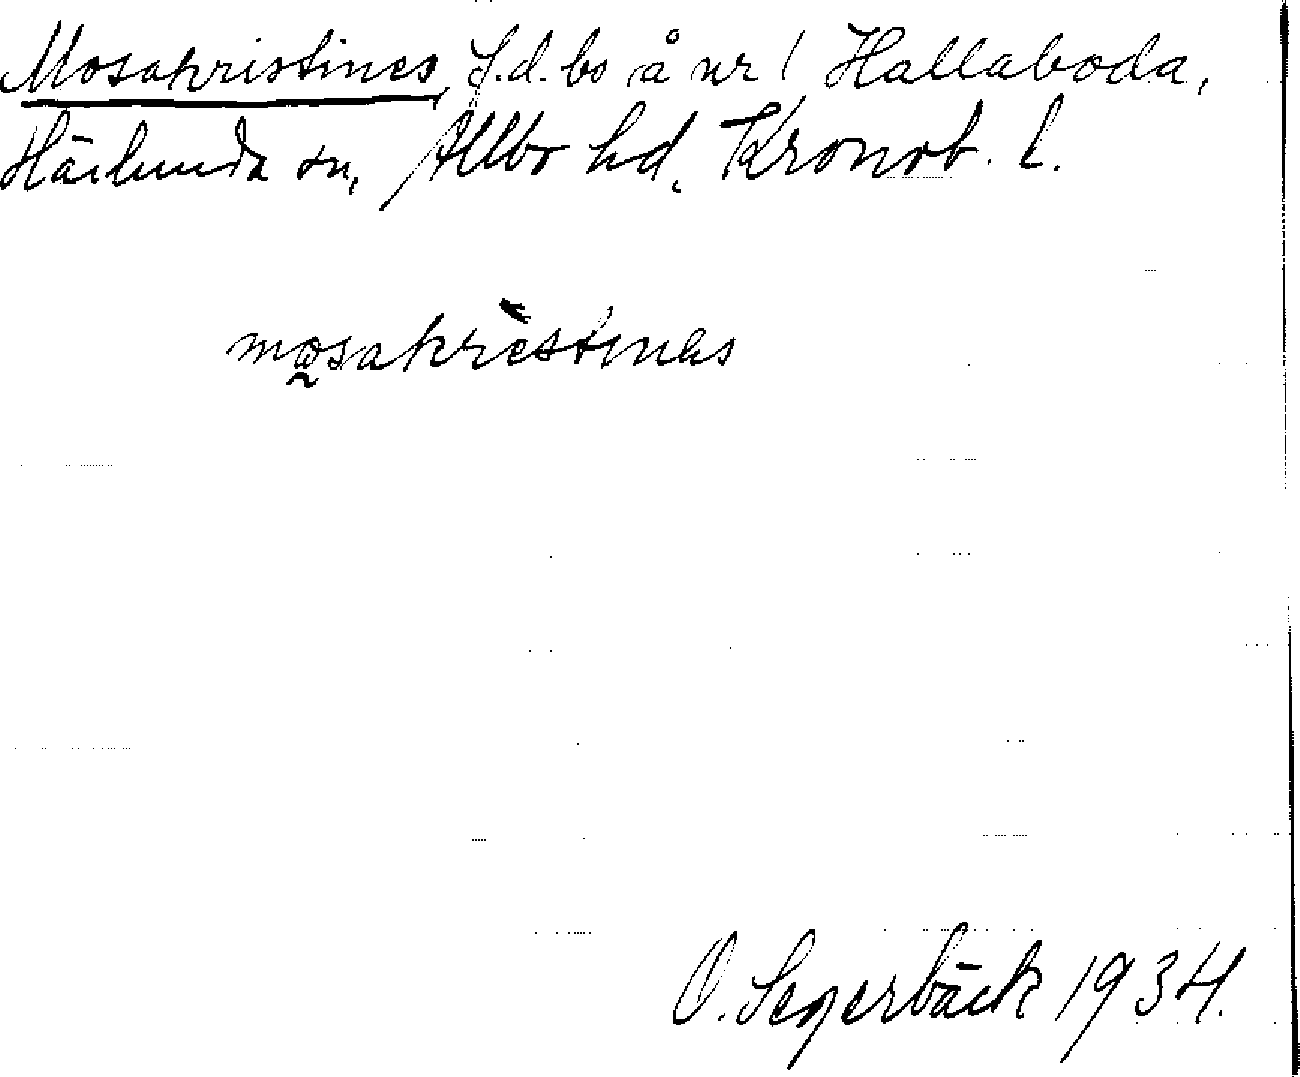 Mosakristines, f.d. bs å nr 1 Hallaboda,
Härlunda sn, Allbo hd, Kronob. l.
mosakrìstinas
O. Segerbäck 1934.